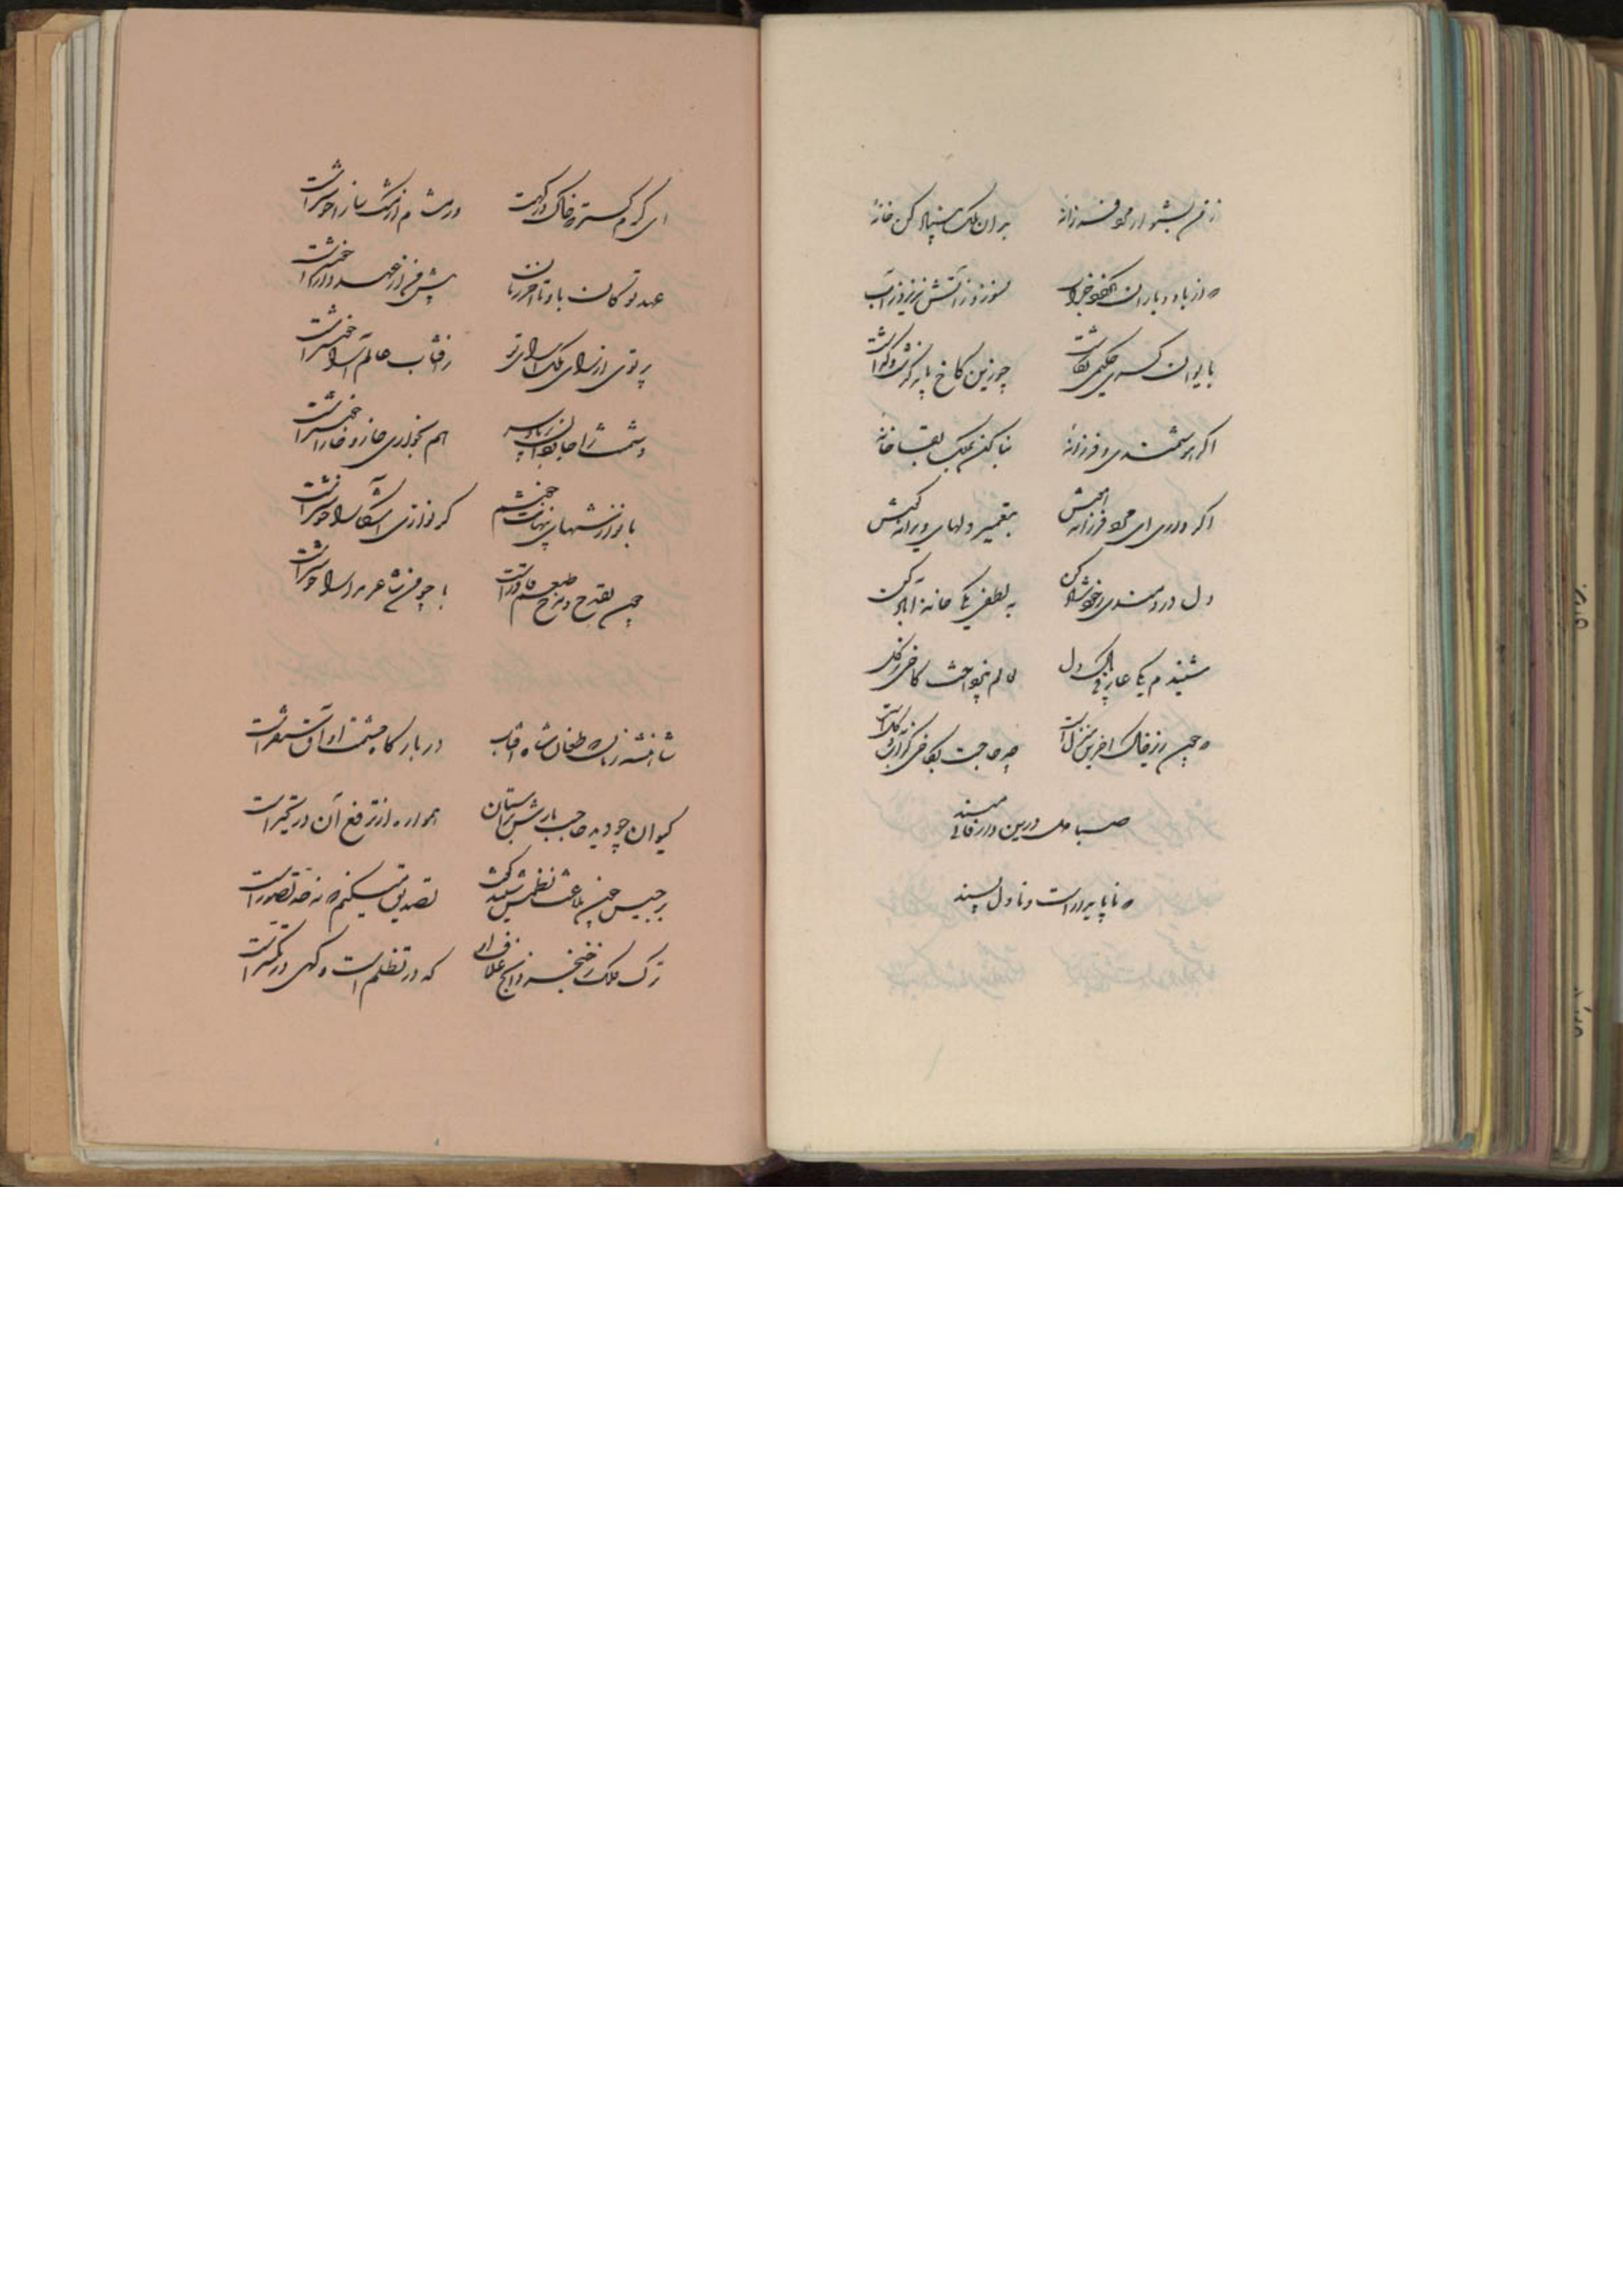 ز من بشنو ای مرد فرزانه بر آن ملک بنیاد کن خانه
که از باد و باران نگردد خراب نسوزد ز آتش نریزد ز آب
بایوان کسری حکیمی نگاشت چو زین کاخ باید گذشت و گذاشت
اگر هوشمندی و فرزانه بنا کن بملک بقا خانه
اگر داری ای مرد فرزانه هش بتعمیر دلهای ویرانه کش
دل دردمندی ز خود شاد کن به لطفی یکی خانه آباد کن
شنیدم یکی عارف پاک دل نخواست کاخی ز گل
که چون زیر خاک آخرین منزل است چه حاجت بکاخی که از گل است
صبا دل درین دار فانی مبند
که ناپایدار است و نا دلپسند
ای کرم گستر که خاک درگهت در مشام از مشک سارا خوشتر است
عهد تو کان باد تا آخر زمان پیش من از عهد دارا خوشتر است
پرتوی از رای ملک آرای تو ز آفتاب عالم آرا خوشتر است
دشمنت را جا هم بخواری خار و خارا خوشتر است
با نوازشهای پنهانت خوشم گر نوازی آشکارا خوشتر است
چون بقدح و مدح طبعم قادر است با چو من شاعر مدارا خوشتر است
شاهنشه زمانه طغان شاه آفتاب در بارگاه حشمت او آستانه است
کیوان چو دید حاجب بارش بر آستان همواره از ترفع آن در تحیر است
برجیس چون بلاغت نظمش شنید گفت تصدیق میکنم که نه حد تصور است
ترک فلک ز خنجر که در تظلم است و گهی در تشکر است